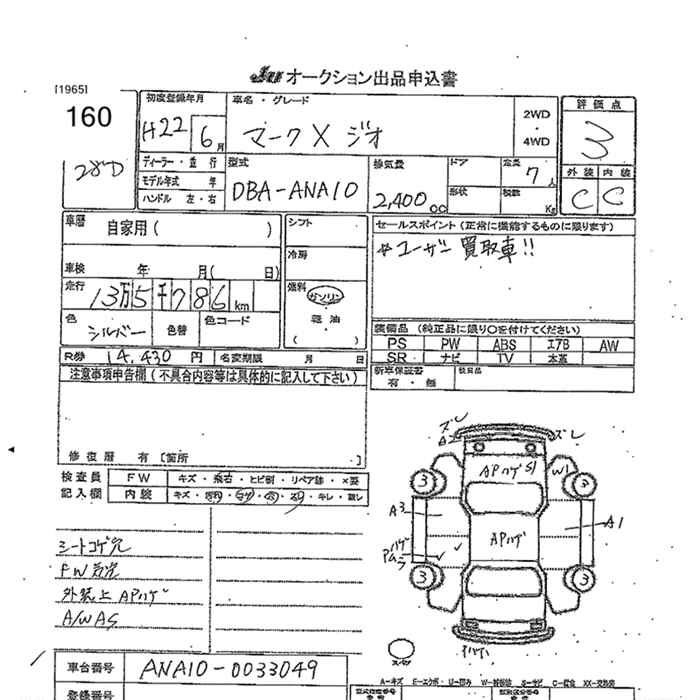 オークション出品申込書
[1965]
160
初度登録年月
車名・グレード
評価点
H22 6月
マークX ジオ
2WD
・
4WD
3
28D
ディーラー・並行
モデル年式 年
ハンドル 左・右
型式
DBA-ANA10
排気量
2,400cc
ドア
定員
7人
形状
積載
Kg
外装 内装
C C
車歴
自家用( )
シフト
セールスポイント(正常に機能するものに限ります)
*ユーザー買取車!!
冷房
車検 年 月( 日)
走行
13万5千786km
燃料
ガソリン
軽油
( )
色
シルバー
色替
色コード
装備品(純正品に限り○を付けてください)
PS PW ABS エアB AW
SR ナビ TV 本革
R券 14,430円
名変期限 月 日
新車保証書
有・無
注意事項申告欄(不具合内容等は具体的に記入して下さい)
修復歴 有[箇所 ]
検査員
記入欄
FW
キズ・飛石・ヒビ割・リペア跡・×要
内装
キズ・汚れ・コゲ・穴・スレ・キレ・欠し
シートコゲ穴
FWキズ
外装上APハゲ
A/WAS
ズレ
ズレ
A2
APハゲ S1
W1
3
3
A3
A1
APハゲ
3
3
スペア
A-キズ E-エクボ U-凹み W-補修跡 S-サビ C-腐食 XX-交換済
車台番号
ANA10-0033049
登録番号